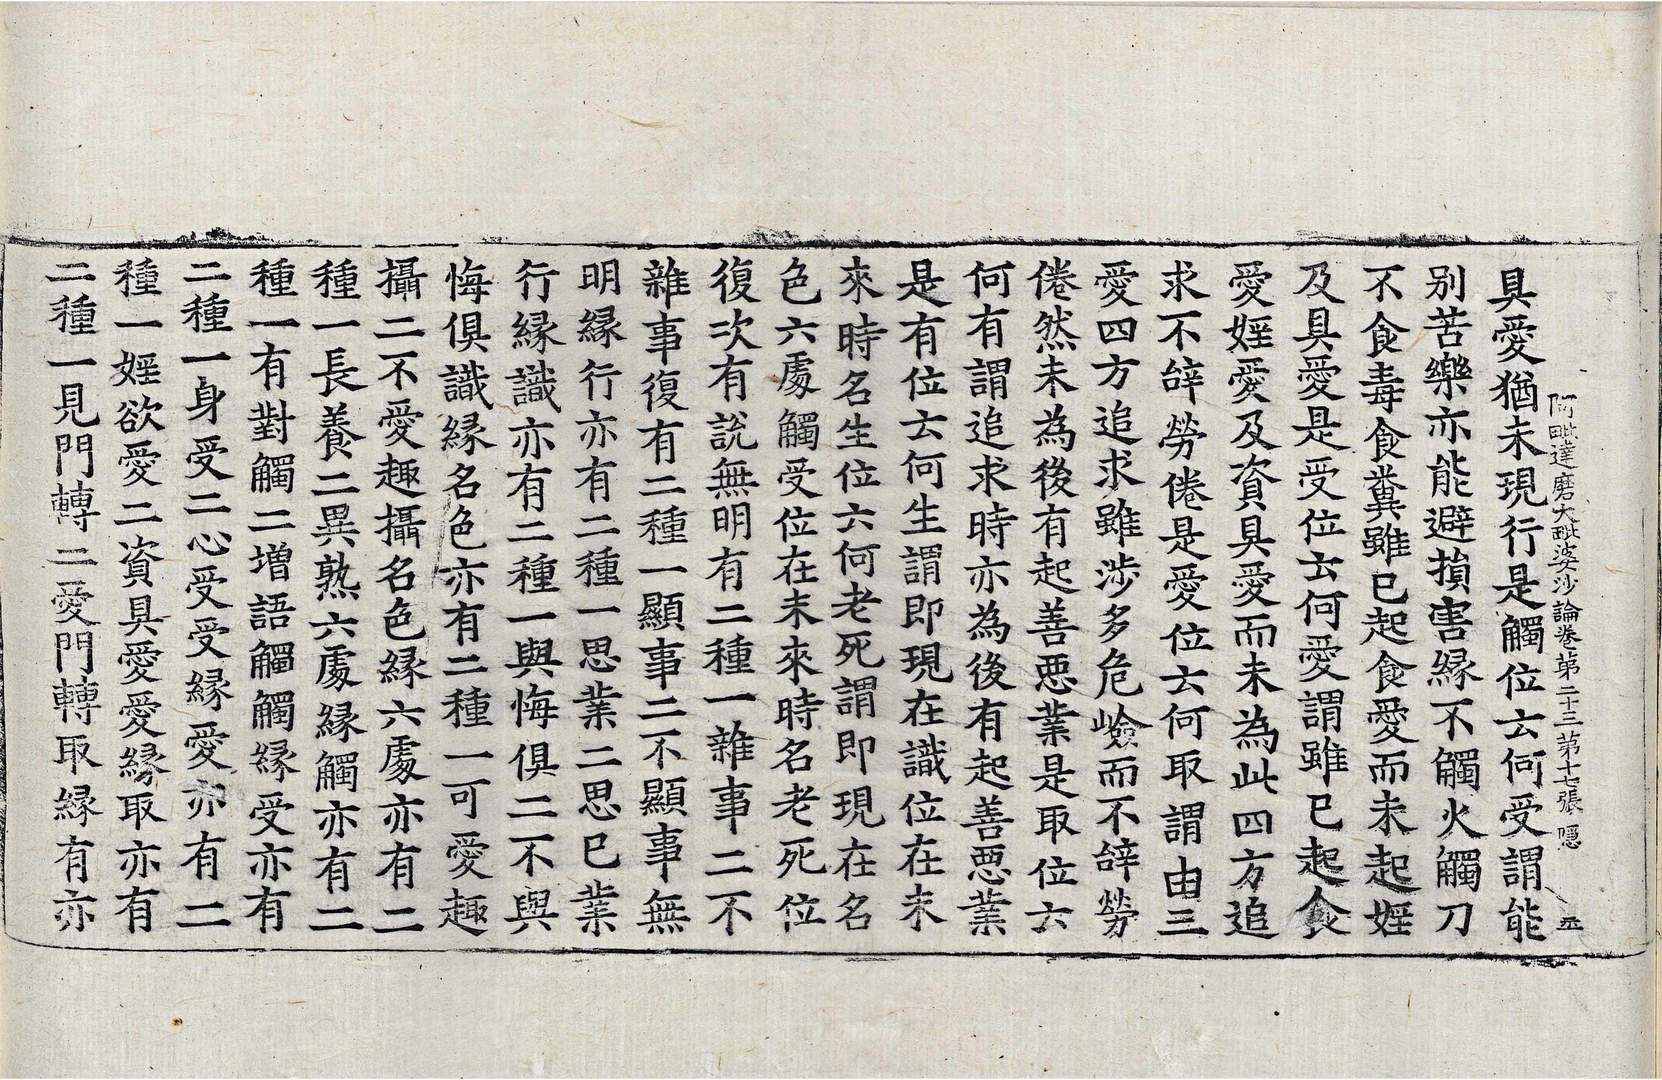 阿毗達磨大毗婆沙論卷第二十三第十七張 隱
具愛猶未現行是觸位云何受謂能
別苦樂亦能避損害緣不觸火觸刀
不食毒食糞雖已起食愛而未起婬
及具愛是受位云何愛謂雖已起食
愛婬愛及資具愛而未為此四方追
求不辝勞倦是愛位云何取謂由三
愛四方追求雖涉多危嶮而不辝勞
倦然未為後有起善惡業是取位云
何有謂追求時亦為後有起善惡業
是有位云何生謂即現在識位在未
來時名生位云何老死謂即現在名
色六處觸受位在未來時名老死位
復次有說無明有二種一雜事二不
雜事復有二種一顯事二不顯事無
明緣行亦有二種一思業二思已業
行緣識亦有二種一與悔俱二不與
悔俱識緣名色亦有二種一可愛趣
攝二不愛趣攝名色緣六處亦有二
種一長養二異熟六處緣觸亦有二
種一有對觸二增語觸觸緣受亦有
二種一身受二心受受緣愛亦有二
種一婬欲愛二資具愛愛緣取亦有
二種一見門轉二愛門轉取緣有亦